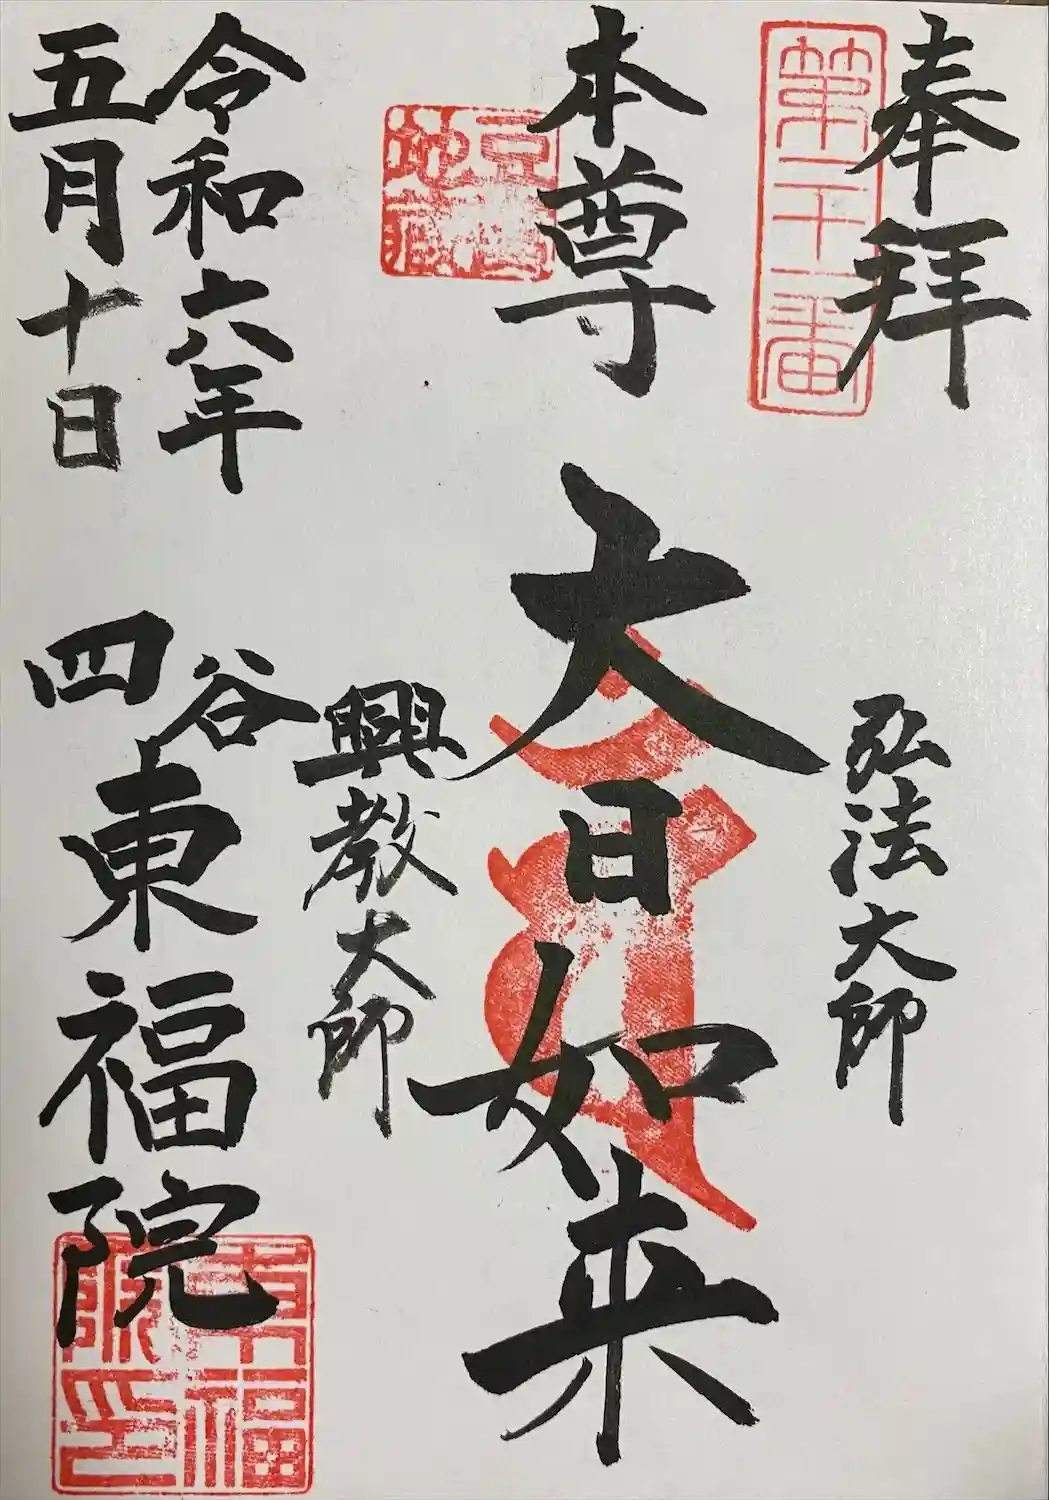 奉拝
第二十一番
弘法大師
本尊
大日如来
豆腐地蔵
興教大師
令和六年
五月十日
四谷
東福院
東福院印